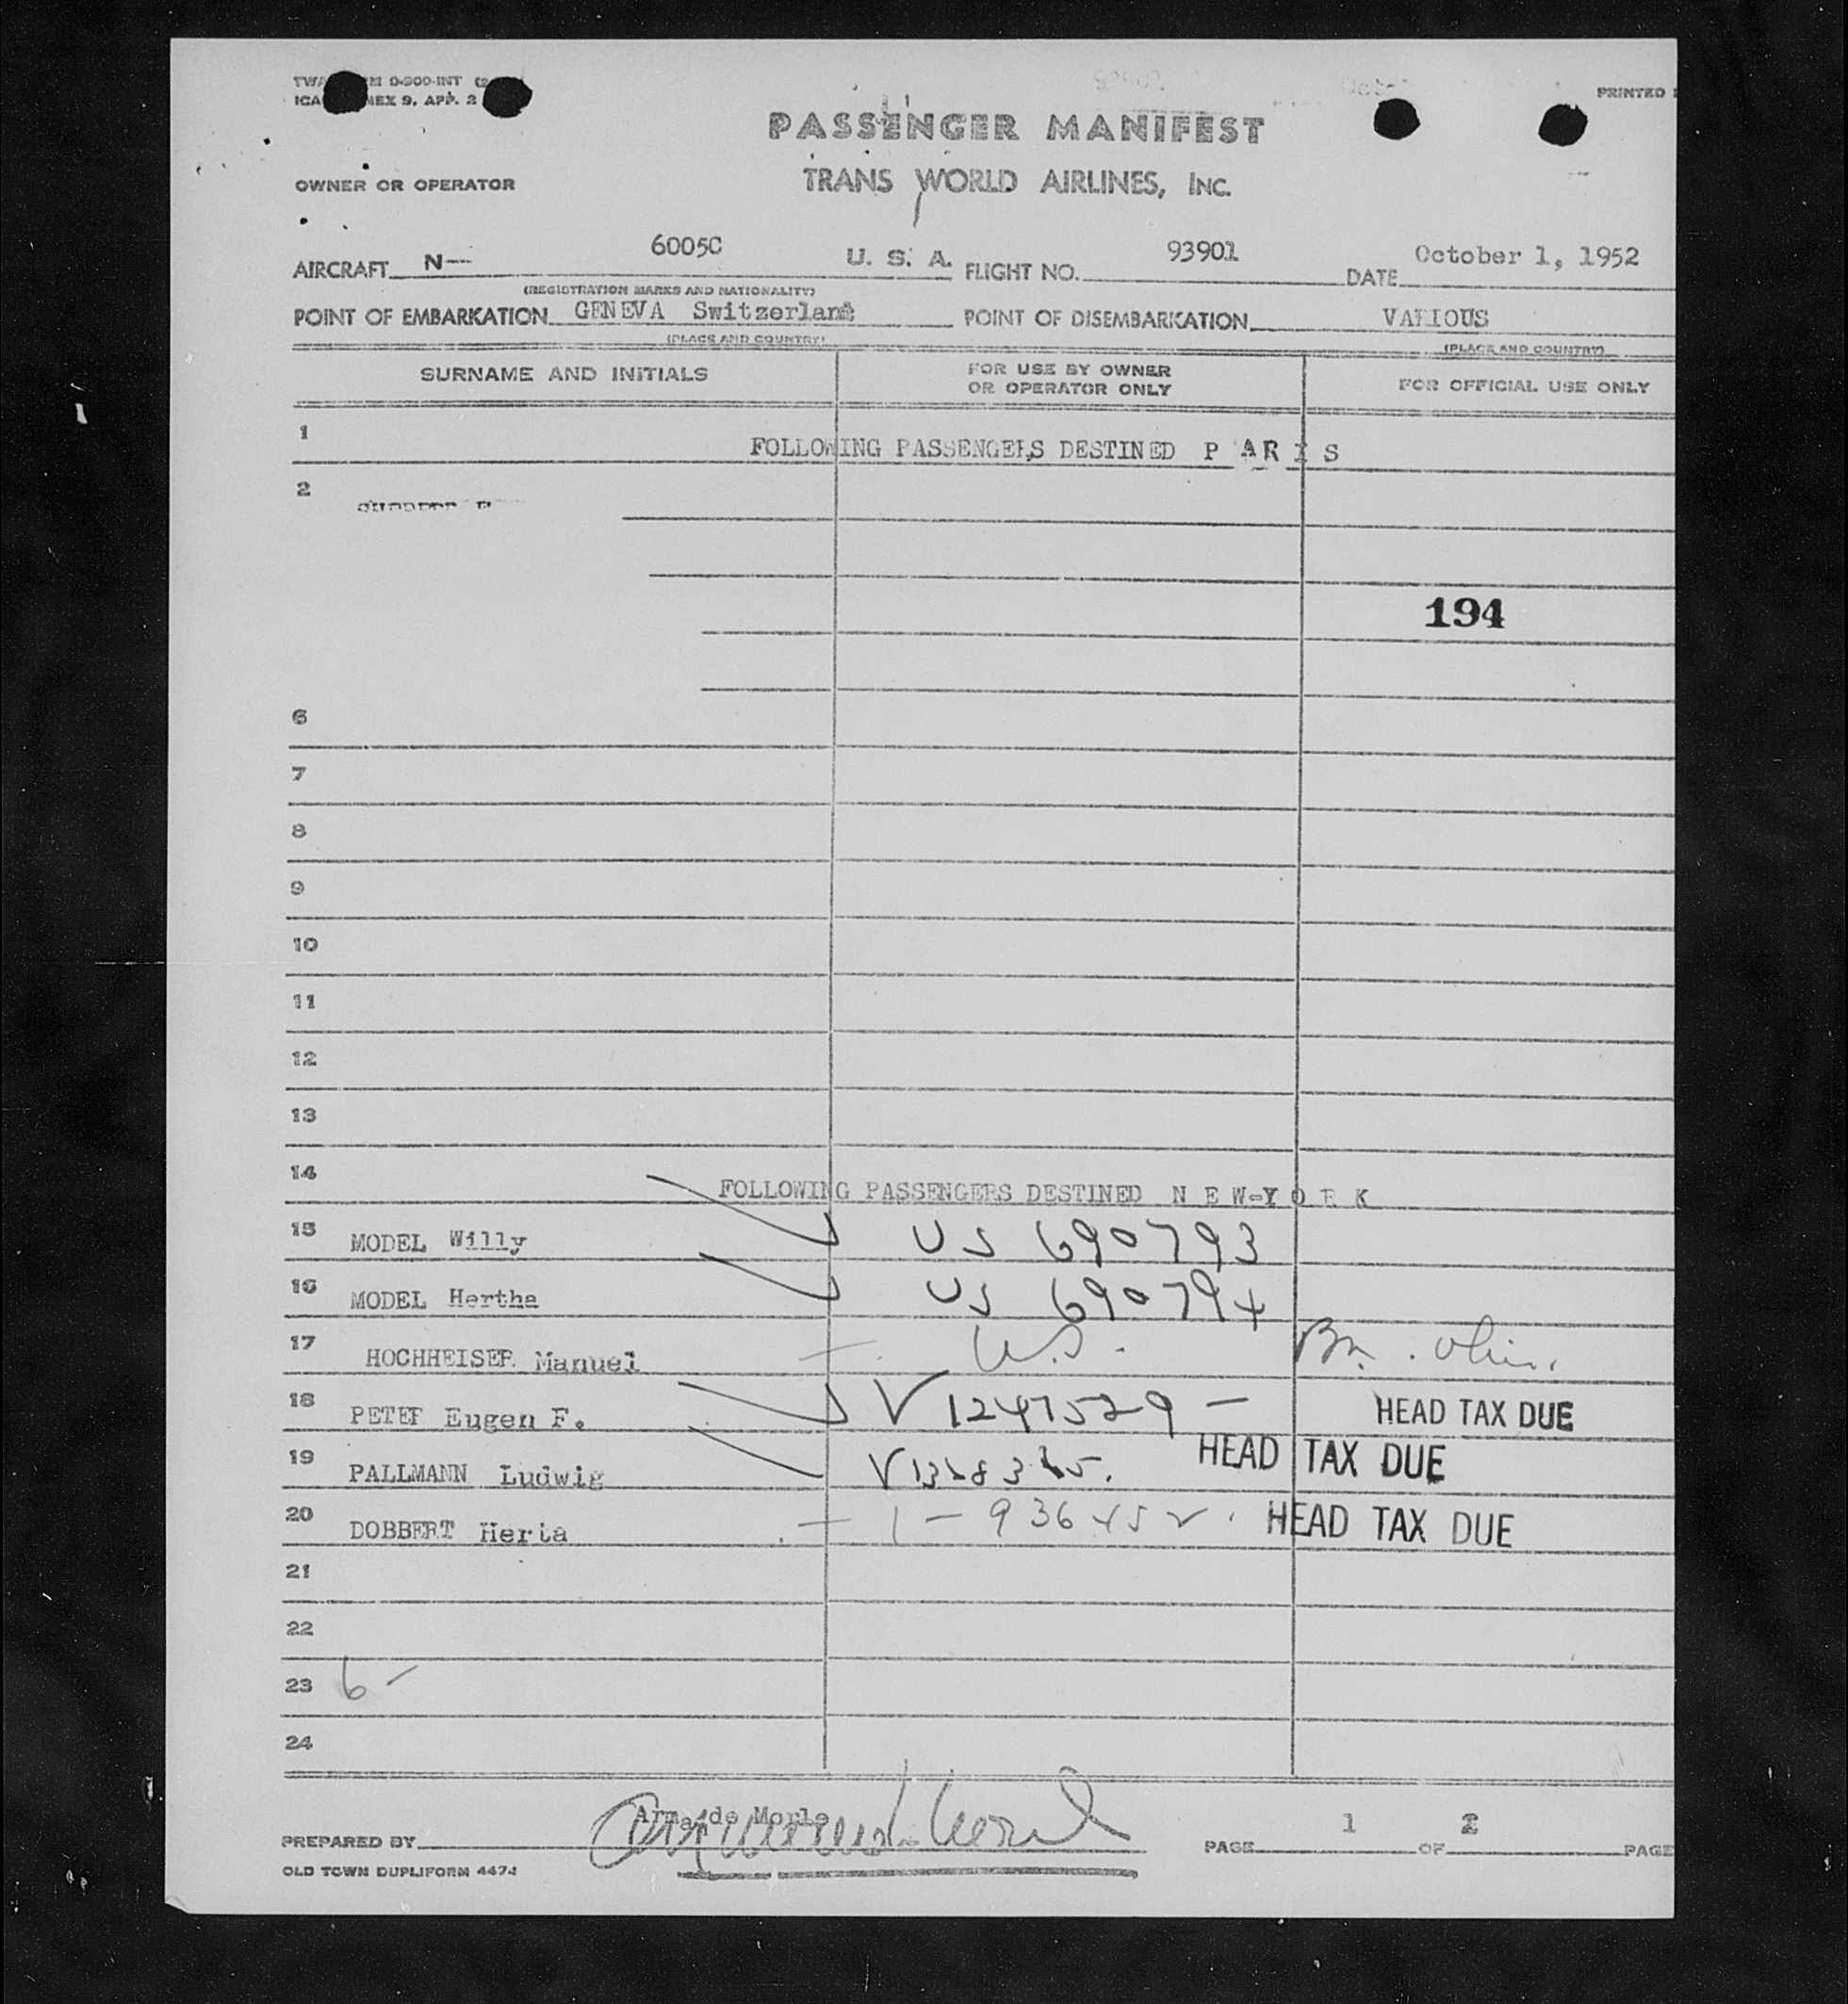 PRINTED
PASSENGER MANIFEST
TRANS WORLD AIRLINES, INC.
OWNER OR OPERATOR
AIRCRAFT N— 6005C U. S. A. FLIGHT NO. 93901 DATE October 1, 1952
(REGISTRATION MARKS AND NATIONALITY)
POINT OF EMBARKATION GENEVA Switzerland POINT OF DISEMBARKATION VARIOUS
(PLACE AND COUNTRY) (PLACE AND COUNTRY)
SURNAME AND INITIALS FOR USE BY OWNER OR OPERATOR ONLY FOR OFFICIAL USE ONLY
1 FOLLOWING PASSENGERS DESTINED P A R I S
2
194
6
7
8
9
10
11
12
13
14 FOLLOWING PASSENGERS DESTINED N E W-Y O R K
15 MODEL Willy US 690793
16 MODEL Hertha US 690794
17 HOCHHEISER Manuel U.S.
18 PETER Eugen F. V 1247529 — HEAD TAX DUE
19 PALLMANN Ludwig HEAD TAX DUE
20 DOBBERT Herta 1-936452 HEAD TAX DUE
21
22
23 6 -
24
PREPARED BY PAGE 1 OF 2 PAGE
OLD TOWN DUPLIFORM 4474